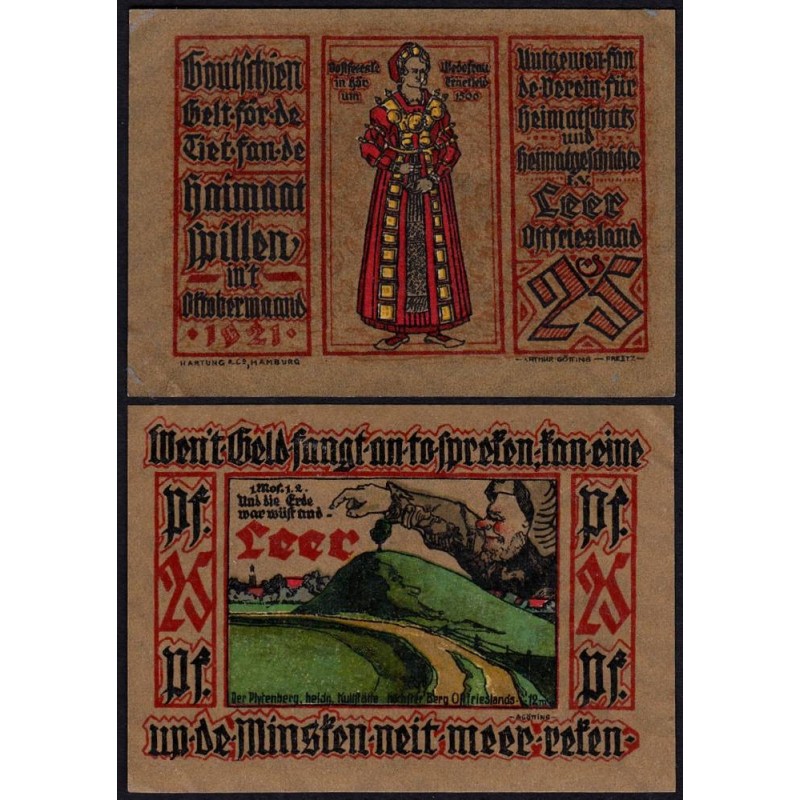 Goutschien
Gelt·för·de
Tiet·fan·de
Haimaat
spillen
in't
Oktobermaand
·1921·
Ostfriesische
in Hör
um
1500
Uutgewen·fan
de·Verein·für
Heimatschutz
und
Heimatgeschichte
E.V.
Leer
Ostfriesland
25
HARTUNG & Co, HAMBURG
Wen't·Geld·fangt·an·to·spreken, kan·eine
Pf.
25
Pf.
1. Mos. 1. 2.
Und die Erde
war wüst und -
Leer
Pf.
25
Pf.
Der Plytenberg, heidn. Kultstätte höchster Berg Ostfrieslands 12 m
- A GÖTING -
up·de·Minsken·neit·meer·reken·